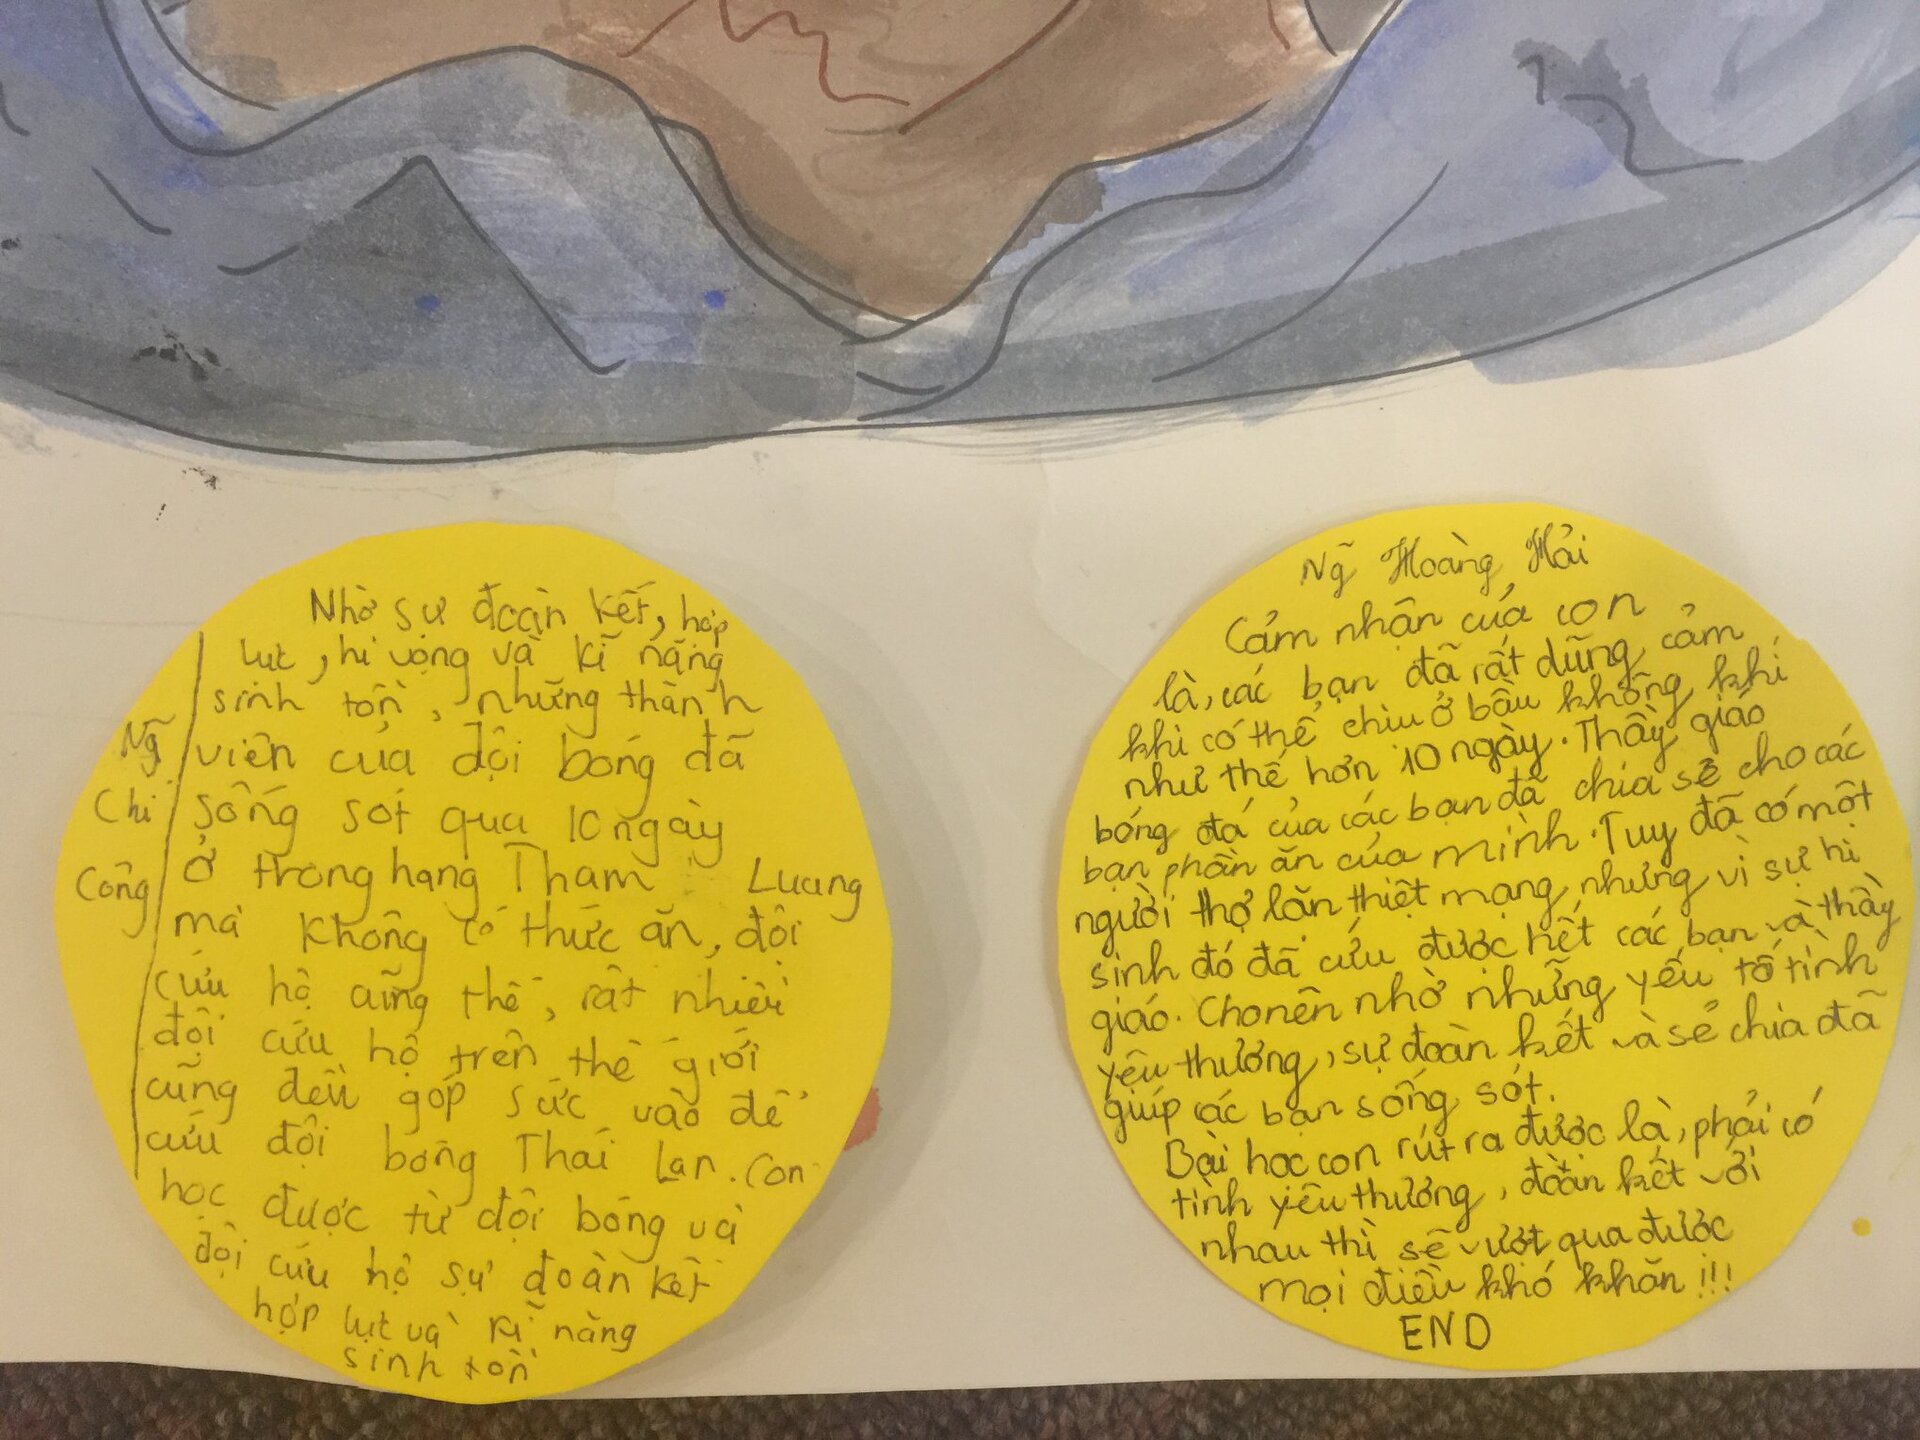 Nhờ sự đoàn kết, hợp
lực, hi vọng và kĩ năng
sinh tồn, những thành
viên của đội bóng đã
sống sót qua 10 ngày
ở trong hang Tham Luang
mà không có thức ăn, đội
cứu hộ cũng thế, rất nhiều
đội cứu hộ trên thế giới
cũng đều góp sức vào để
cứu đội bóng Thái Lan. Con
học được từ đội bóng và
đội cứu hộ sự đoàn kết
hợp lực và kĩ năng
sinh tồn
Ng̃
Chí
Công
Ng̃ Hoàng Hải
Cảm nhận của con
là, các bạn đã rất dũng cảm
khi có thể chịu ở bầu không khí
như thế hơn 10 ngày. Thầy giáo
bóng đá của các bạn đã chia sẻ cho các
bạn phần ăn của mình. Tuy đã có một
người thợ lặn thiệt mạng, nhưng vì sự hi
sinh đó đã cứu được hết các bạn và thầy
giáo. Cho nên nhờ những yếu tố tình
yêu thương, sự đoàn kết và sẻ chia đã
giúp các bạn sống sót.
Bài học con rút ra được là, phải có
tình yêu thương, đoàn kết với
nhau thì sẽ vượt qua được
mọi điều khó khăn !!!
END